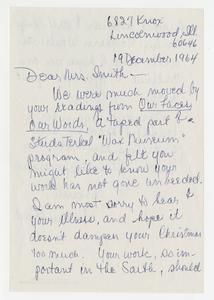 6827 Knox
Lincolnwood, Ill.
60646
19 December 1964
Dear Mrs. Smith –
We were much moved by
your readings from Our Faces,
Our Words, a taped part of a
Studs Terkel "Wax Museum"
program, and felt you
might like to know your
work has not gone unheeded.
I am most sorry to hear of
your illness, and hope it
doesn't dampen your Christmas
too much. Your work, so im-
portant in the South, should